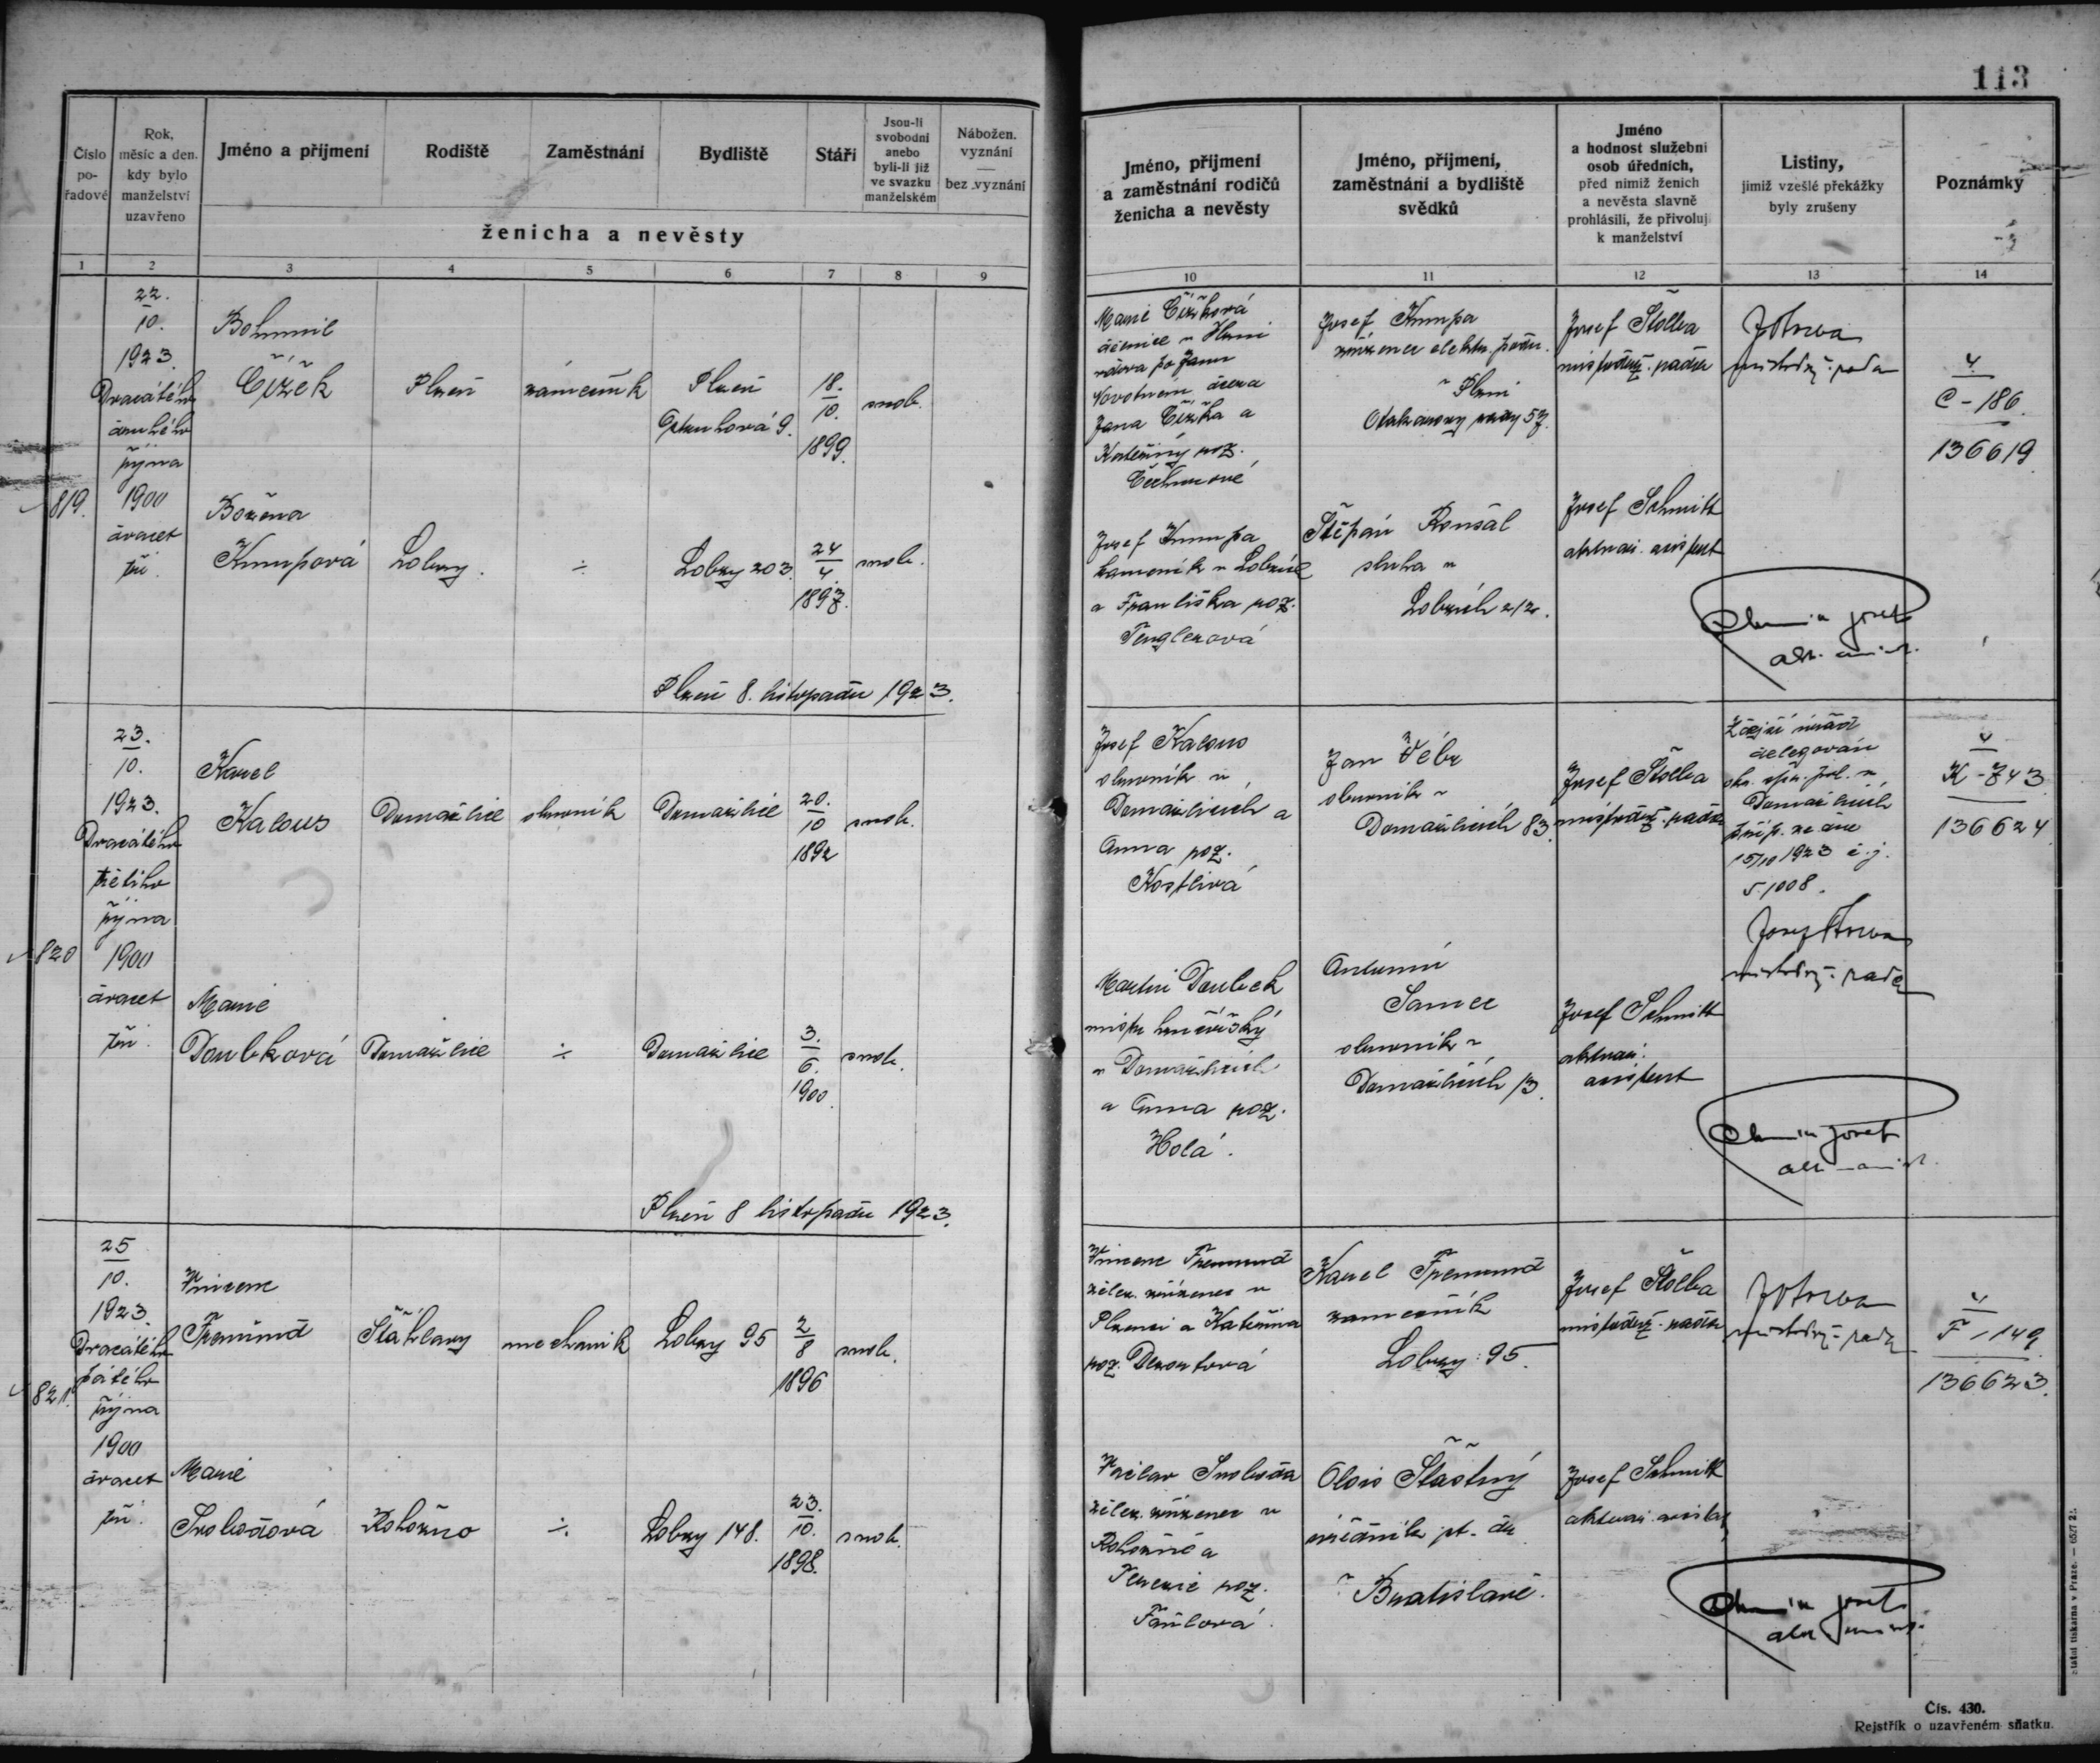 113
Číslo pořadové
Rok, měsíc a den, kdy bylo manželství uzavřeno
Jméno a příjmení
Rodiště
Zaměstnání
Bydliště
Stáří
Jsou-li svobodni anebo byli-li již ve svazku manželském
Nábožen. vyznání — bez vyznání
ženicha a nevěsty
1 2 3 4 5 6 7 8 9
Jméno, příjmení a zaměstnání rodičů ženicha a nevěsty
Jméno, příjmení, zaměstnání a bydliště svědků
Jméno a hodnost služební osob úředních, před nimiž ženich a nevěsta slavně prohlásili, že přivolují k manželství
Listiny, jimiž vzešlé překážky byly zrušeny
Poznámky
10 11 12 13 14
819.
22.
10.
1923.
Dvacátého
druhého
října
1900
dvacet
tři.
Bohumil
Čížek
Plzeň
zámečník
Plzeň
9.
18.
10.
1899.
svob.
Božena
Krumpová
Lobzy.
÷
Lobzy 203.
24
4.
1897.
svob.
Plzeň 8. listopadu 1923.
Marie Čížková
dělnice v Plzni
vdova po Janu
dcera
Jana Čížka a
Kateřiny roz.
Josef Krumpa
kameník v Lobzích
a Františka roz.
Tenglerová
Josef Krumpa
zřízenec elektr. podn.
v Plzni
Otakarovy sady 57.
Štěpán
sluha v
Lobzích 212.
Josef Štolba
místodrž. rada
Josef Schmitt
aktuár. asistent
místodrž. rada
4
C-186.
136619
820
23.
10.
1923.
Dvacátého
třetího
října
1900
dvacet
tři.
Karel
Kalous
Domažlice
obuvník
Domažlice
20.
10
1892
svob.
Marie
Doubková
Domažlice
÷
Domažlice
3.
6.
1900.
svob.
Plzeň 8 listopadu 1923.
Josef Kalous
obuvník v
Domažlicích a
Anna roz.
Kostlivá
Martin Doubek
mistr hrnčířský
v Domažlicích
a Anna roz.
Holá.
Jan Vébr
obuvník v
Domažlicích 83.
Antonín
Samec
obuvník v
Domažlicích 13.
Josef Štolba
místodrž. rada
Josef Schmitt
aktuár.
asistent
Zdejší úřad
delegován
okr. spr. pol. v
Domažlicích
příp. ze dne
15/10 1923 č. j.
51008.
místodrž. rada
4
K-743
136624
821.
25
10.
1923.
Dvacátého
pátého
října
1900
dvacet
tři.
Vincenc
Fremund
Šťáhlavy
mechanik
Lobzy 95
2
8
1896
svob.
Marie
Svobodová
Rohozno
÷
Lobzy 148.
23.
10.
1898.
svob.
Vincenc Fremund
želez. zřízenec v
Plzni a Kateřina
roz.
Václav Svoboda
želez. zřízenec v
Rohozně a
Terezie roz.
Karel Fremund
zámečník
Lobzy 95.
Alois Šťastný
úředník
v Bratislavě.
Josef Štolba
místodrž. rada
Josef Schmitt
aktuár. asist.
místodrž. rada
4
F-149.
136623.
Čís. 430.
Rejstřík o uzavřeném sňatku.
Státní tiskárna v Praze.